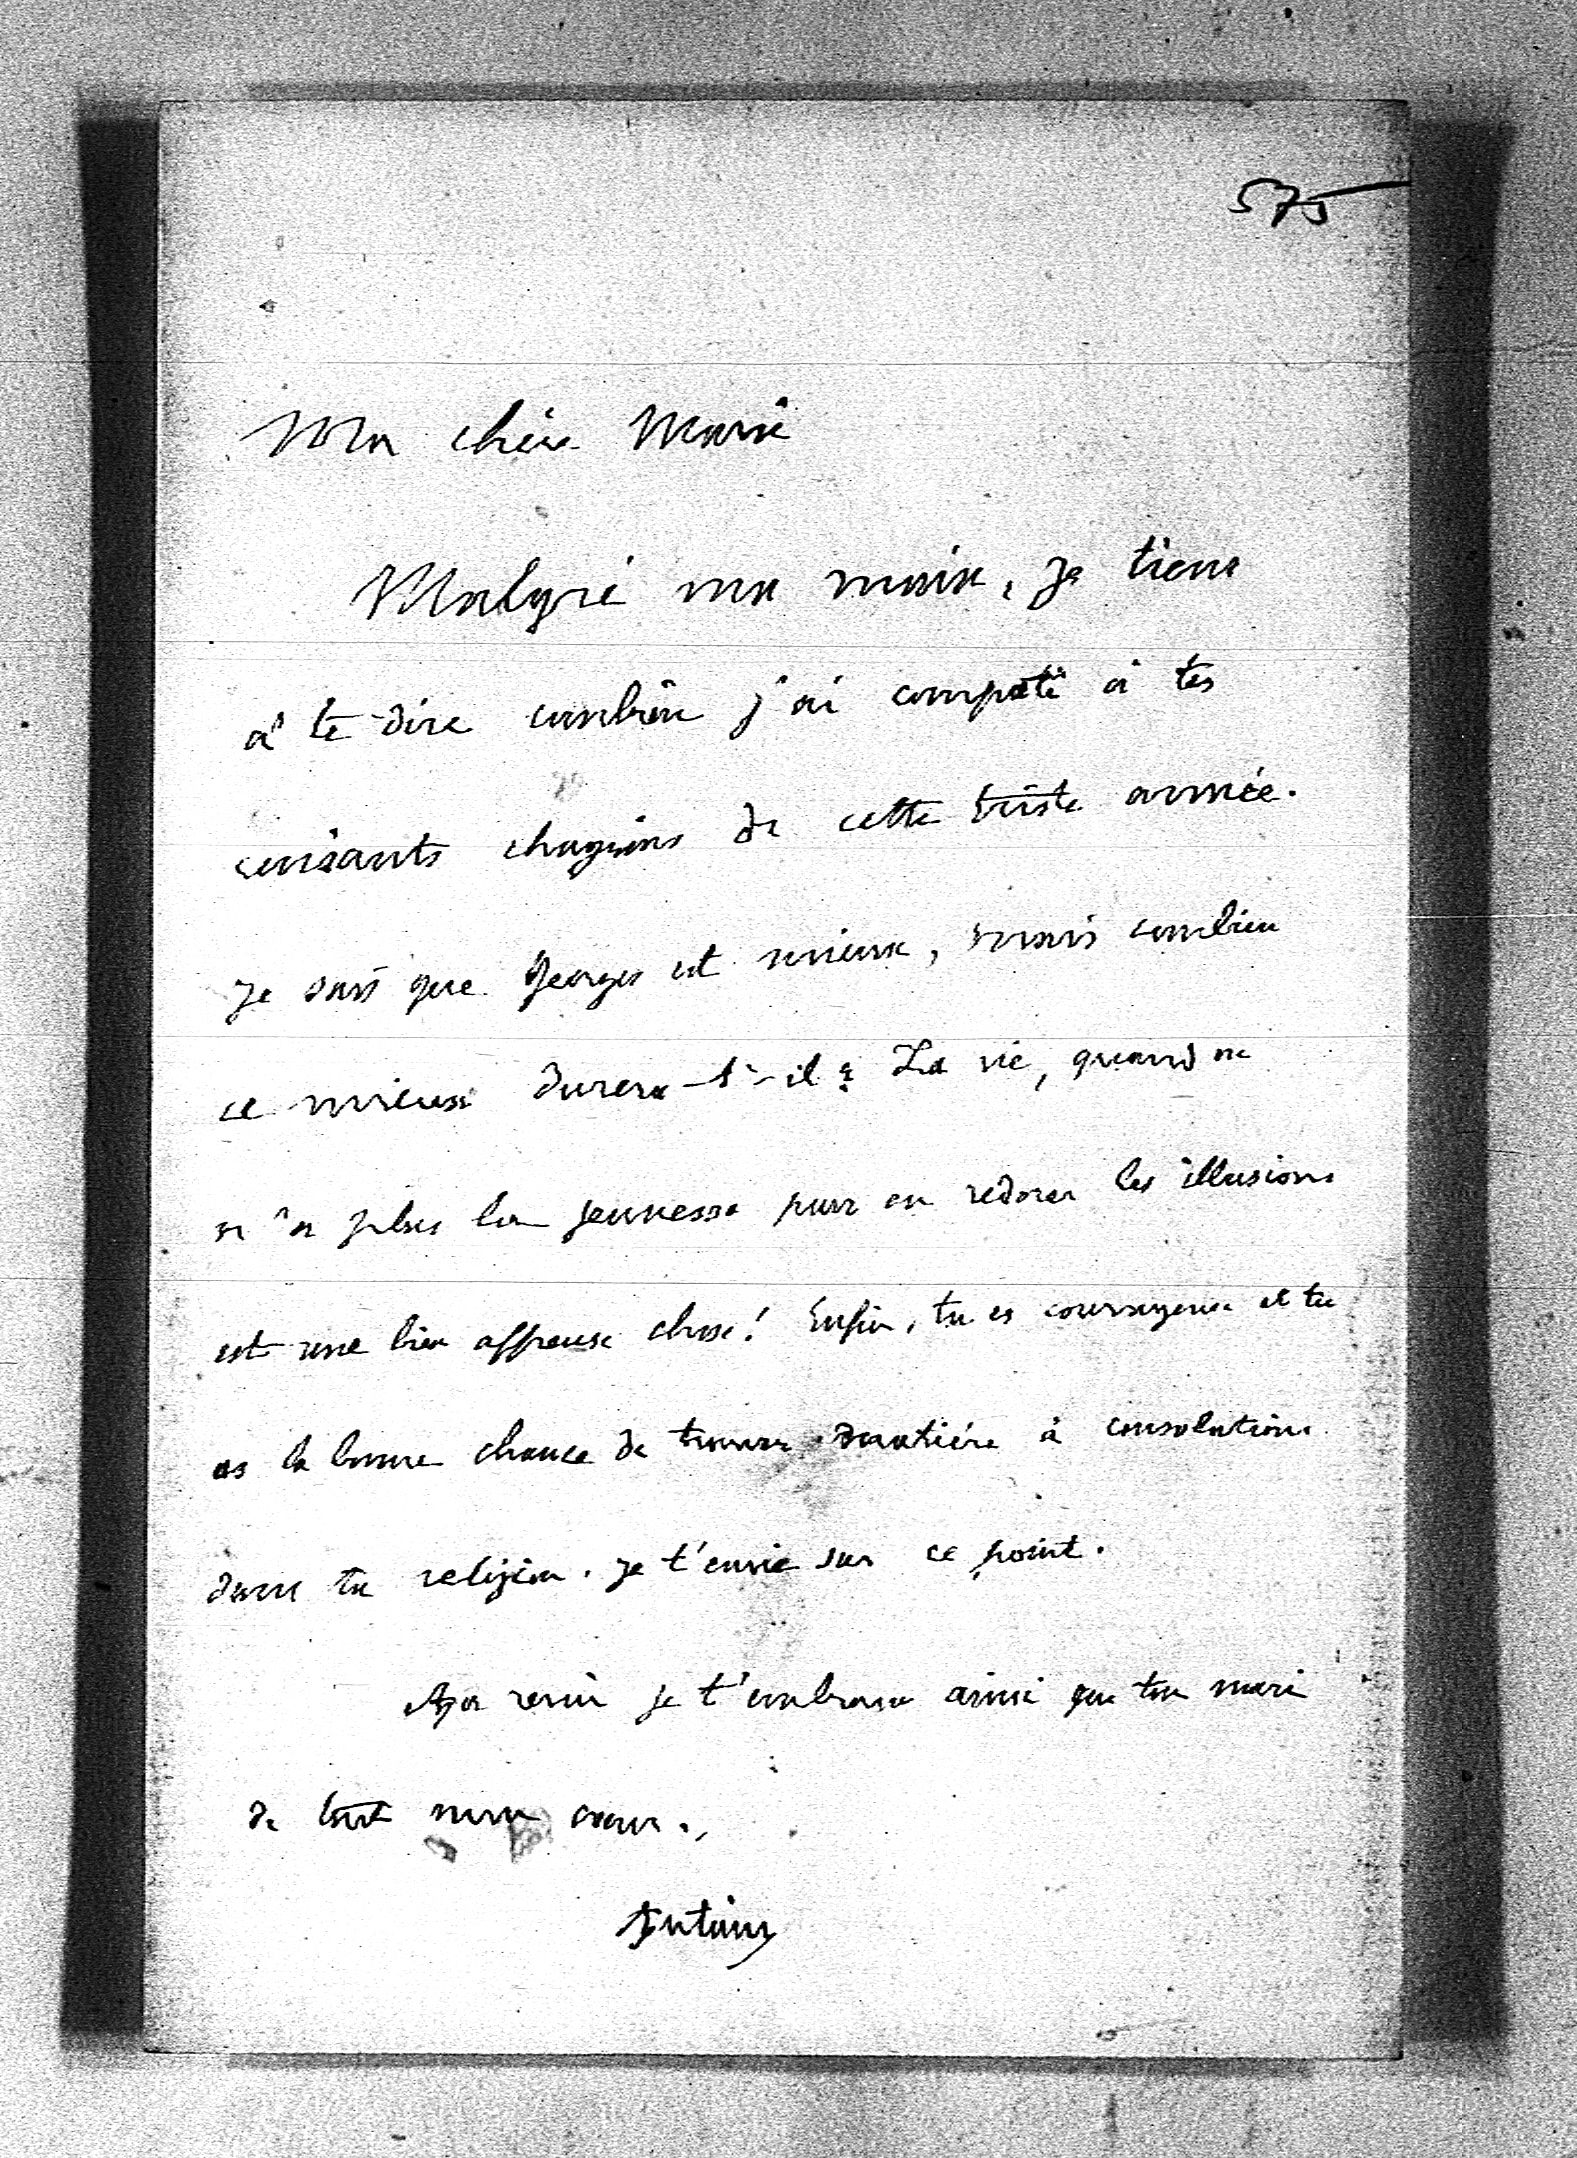 575
Ma chère Marie
Malgré ma main, je tiens
à te dire combien j'ai compati à tes
cuisants chagrins de cette triste année.
Je sais que Georges est mieux, mais combien
ce mieux durera-t-il ? La vie, quand on
n'a plus la jeunesse pour en redorer les illusions
est une bien affreuse chose ! Enfin, tu es courageuse et tu
as la bonne chance de trouver matière à consolations
dans ta religion. Je t'envie sur ce point.
revoir je t'embrasse ainsi que ton mari
de tout mon cœur.